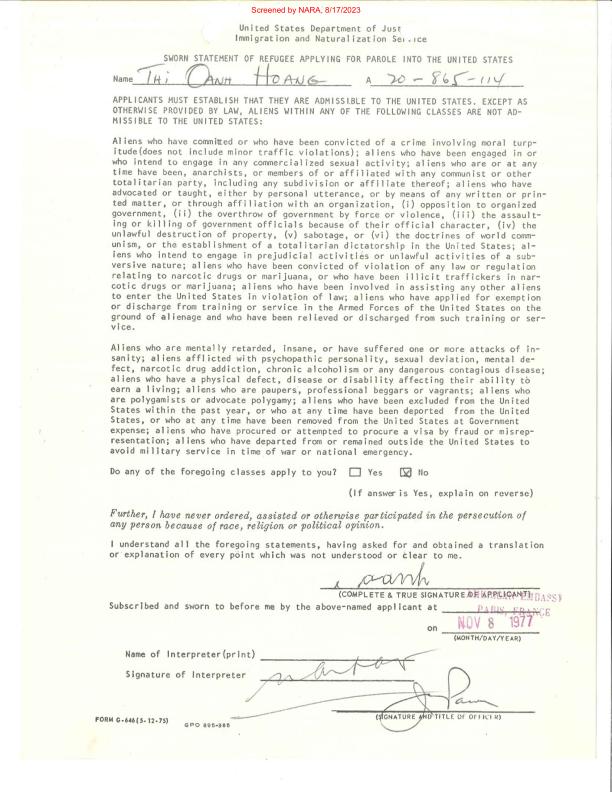 Screened by NARA, 8/17/2023
United States Department of Just
Immigration and Naturalization Service
SWORN STATEMENT OF REFUGEE APPLYING FOR PAROLE INTO THE UNITED STATES
Name THI OANH HOANG A 20-865-114
APPLICANTS MUST ESTABLISH THAT THEY ARE ADMISSIBLE TO THE UNITED STATES. EXCEPT AS
OTHERWISE PROVIDED BY LAW, ALIENS WITHIN ANY OF THE FOLLOWING CLASSES ARE NOT AD-
MISSIBLE TO THE UNITED STATES:
Aliens who have committed or who have been convicted of a crime involving moral turp-
itude(does not include minor traffic violations); aliens who have been engaged in or
who intend to engage in any commercialized sexual activity; aliens who are or at any
time have been, anarchists, or members of or affiliated with any communist or other
totalitarian party, including any subdivision or affiliate thereof; aliens who have
advocated or taught, either by personal utterance, or by means of any written or prin-
ted matter, or through affiliation with an organization, (i) opposition to organized
government, (ii) the overthrow of government by force or violence, (iii) the assault-
ing or killing of government officials because of their official character, (iv) the
unlawful destruction of property, (v) sabotage, or (vi) the doctrines of world comm-
unism, or the establishment of a totalitarian dictatorship in the United States; al-
iens who intend to engage in prejudicial activities or unlawful activities of a sub-
versive nature; aliens who have been convicted of violation of any law or regulation
relating to narcotic drugs or marijuana, or who have been illicit traffickers in nar-
cotic drugs or marijuana; aliens who have been involved in assisting any other aliens
to enter the United States in violation of law; aliens who have applied for exemption
or discharge from training or service in the Armed Forces of the United States on the
ground of alienage and who have been relieved or discharged from such training or ser-
vice.
Aliens who are mentally retarded, insane, or have suffered one or more attacks of in-
sanity; aliens afflicted with psychopathic personality, sexual deviation, mental de-
fect, narcotic drug addiction, chronic alcoholism or any dangerous contagious disease;
aliens who have a physical defect, disease or disability affecting their ability to
earn a living; aliens who are paupers, professional beggars or vagrants; aliens who
are polygamists or advocate polygamy; aliens who have been excluded from the United
States within the past year, or who at any time have been deported from the United
States, or who at any time have been removed from the United States at Government
expense; aliens who have procured or attempted to procure a visa by fraud or misrep-
resentation; aliens who have departed from or remained outside the United States to
avoid military service in time of war or national emergency.
Do any of the foregoing classes apply to you? Yes No
(If answer is Yes, explain on reverse)
Further, I have never ordered, assisted or otherwise participated in the persecution of
any person because of race, religion or political opinion.
I understand all the foregoing statements, having asked for and obtained a translation
or explanation of every point which was not understood or clear to me.
oanh
(COMPLETE & TRUE SIGNATURE OF APPLICANT)
Subscribed and sworn to before me by the above-named applicant at AMERICAN EMBASSY
PARIS, FRANCE
on NOV 8 1977
(MONTH/DAY/YEAR)
Name of Interpreter(print)
Signature of Interpreter
(SIGNATURE AND TITLE OF OFFICER)
FORM G-646(5-12-75) GPO 895-885